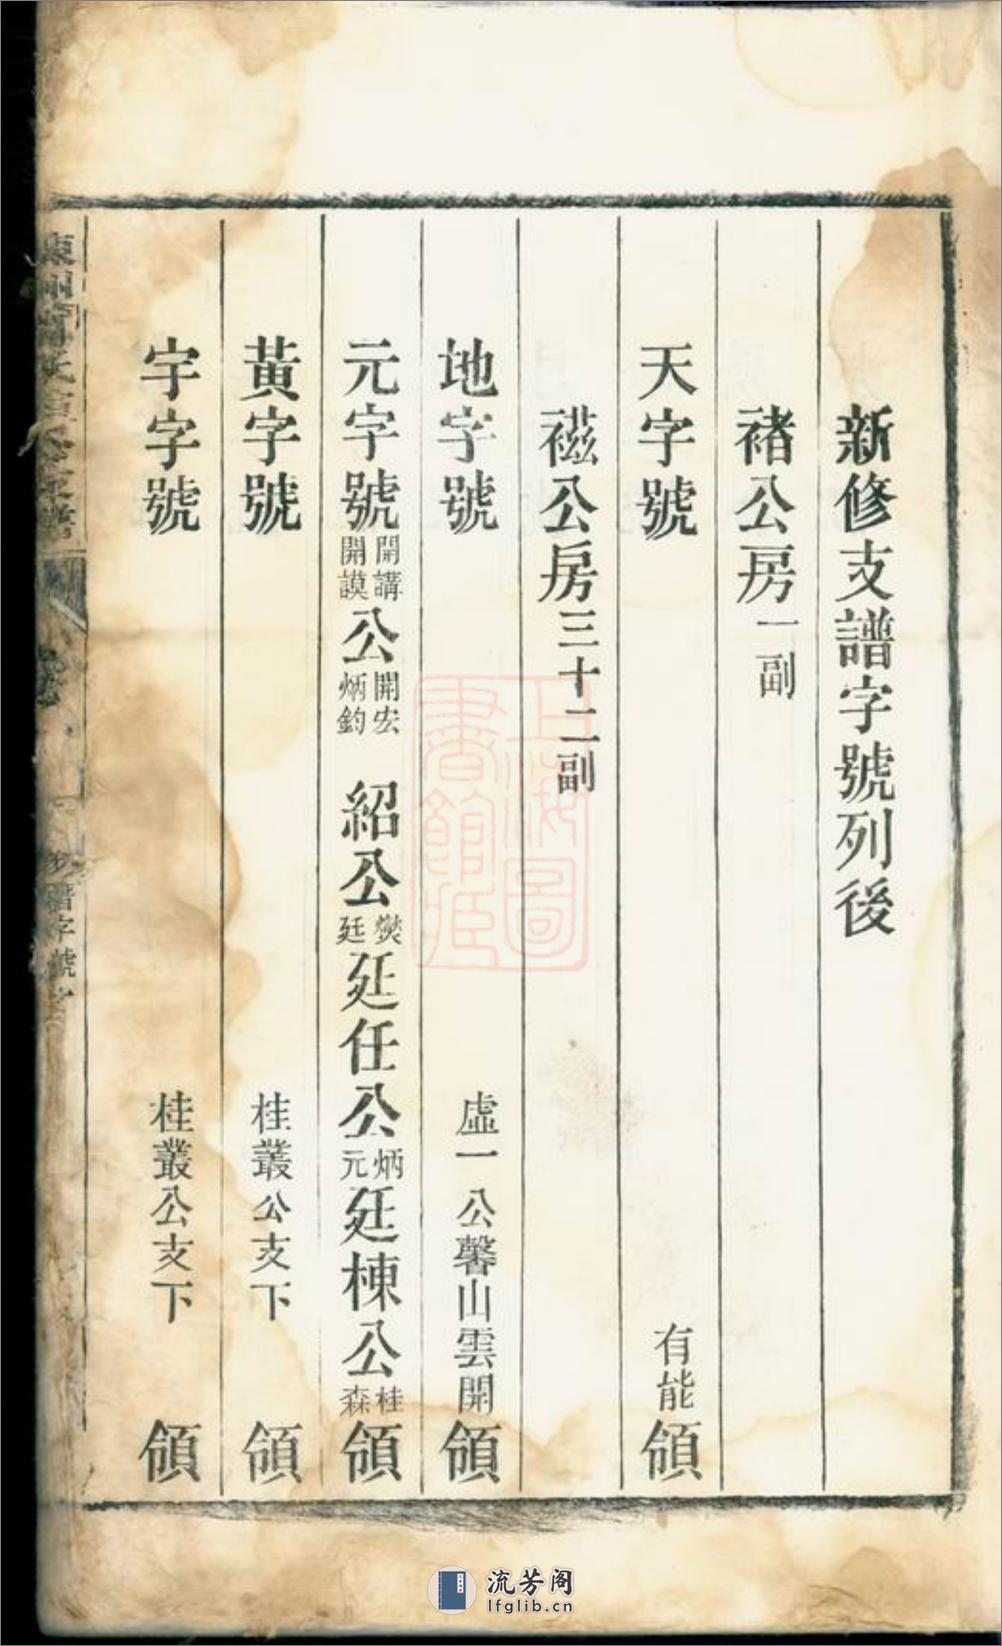 新修支譜字號列後
褚公房一副
天字號 有能領
禌公房三十二副
地字號 虛一公馨山雲開領
元字號開講開謨公開宏炳鈞 紹公燓廷廷任公炳元廷棟公桂森領
黃字號 桂叢公支下領
宇字號 桂叢公支下領
譜字號
上海圖書館藏
流芳阁
lfglib.cn